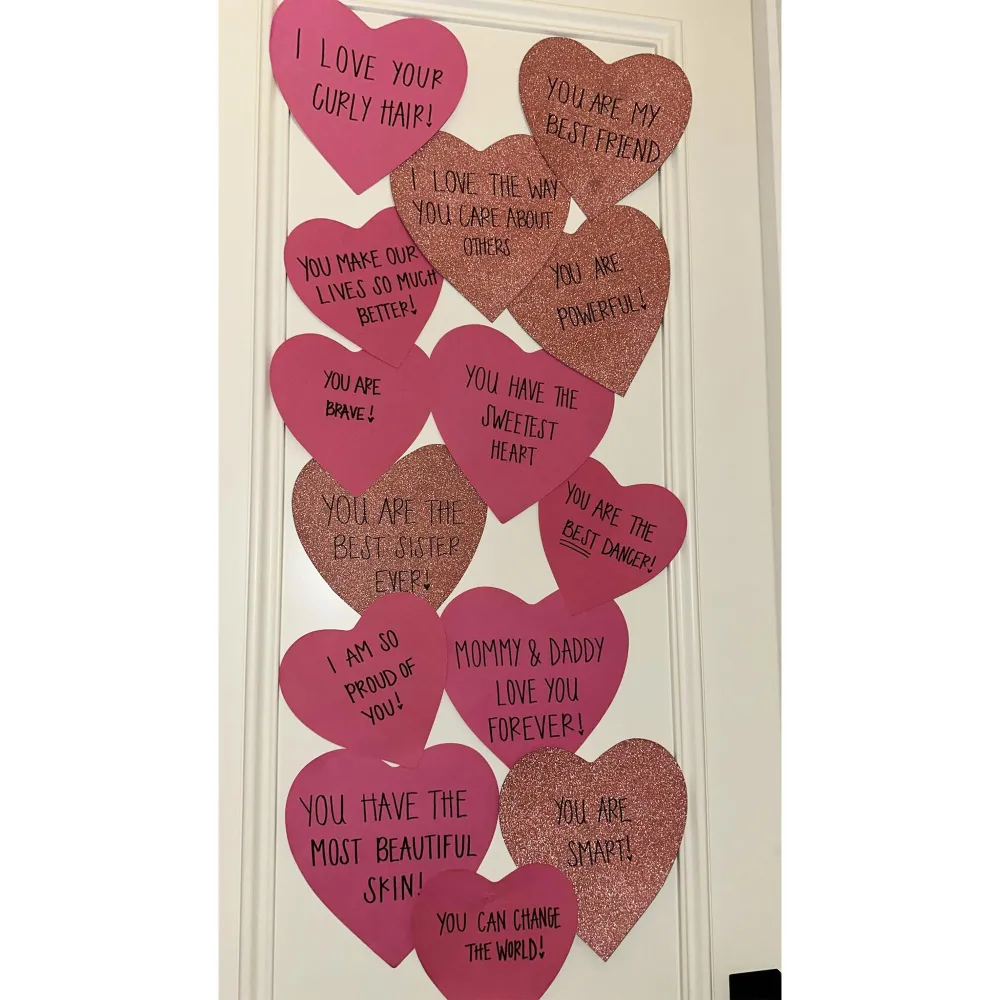 I LOVE YOUR
CURLY HAIR!
YOU ARE MY
BEST FRIEND
I LOVE THE WAY
YOU CARE ABOUT
OTHERS
YOU MAKE OUR
LIVES SO MUCH
BETTER!
YOU ARE
POWERFUL!
YOU ARE
BRAVE!
YOU HAVE THE
SWEETEST
HEART
YOU ARE THE
BEST SISTER
EVER!
YOU ARE THE
BEST DANCER!
I AM SO
PROUD OF
YOU!
MOMMY & DADDY
LOVE YOU
FOREVER!
YOU HAVE THE
MOST BEAUTIFUL
SKIN!
YOU ARE
SMART!
YOU CAN CHANGE
THE WORLD!